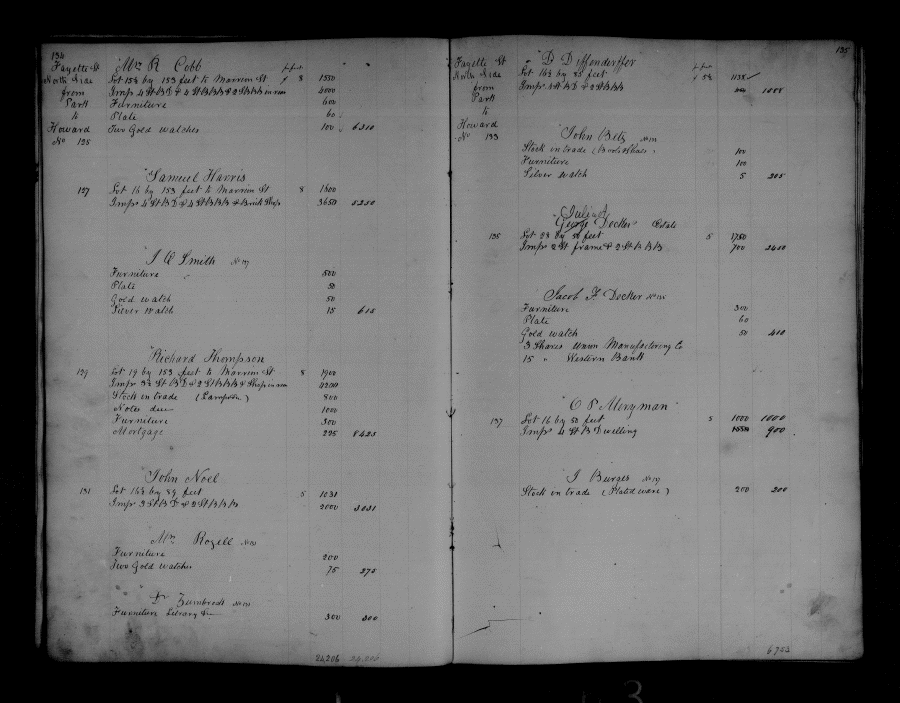 134
Fayette St Mrs R Cobb p foot
North Side Lot 15½ by 153 feet to Marrion St 8 1550
from Imps 4 St B D & 4 St B B B & 2 St B B in rear 4000
Park Furniture 600
to Plate 60
Howard Two Gold watches 100 6310
No 125
Samuel Harris
127 Lot 16 by 153 feet to Marrion St 8 1600
Imps 4 St B D & 4 St B B B & Brick Shop 3650 5250
J Q Smith No 127
Furniture 500
Plate 50
Gold watch 50
Silver watch 15 615
Richard Thompson
129 Lot 19 by 153 feet to Marrion St 8 1900
Imps 3½ St B D & 2 St B B B & Shop in rear 4200
Stock in trade 800
Notes due 1000
Furniture 300
Mortgage 225 8425
John Noel
131 Lot 16½ by 89 feet 5 1031
Imps 3 St B D & 2 St B B B 2000 3031
Mrs Rozell No 131
Furniture 200
Two Gold watches 75 275
Dr Zumbrodt No 131
Furniture Library &c 300 300
24,206 24,206
135
Fayette St D Diffenderffer p foot
North Side Lot 16½ by 80 feet 1138
from Imps 4 St B D & 2 St B B B
Park
to
Howard
No 133 John Betz No 133
Stock in trade (Boots & Shoes) 100
Furniture 100
Silver watch 5 205
Juliat
George Decker Estate
135 Lot 23 by 80 feet 5 1750
Imps 2 St frame & 2 St B B B 700 2450
Jacob F Decker No 135
Furniture 300
Plate 60
Gold watch 50 410
3 Shares Union Manufactering Co
15 " Western Bank
C P Meryman
137 Lot 16 by 80 feet 5 1000 1000
Imps 4 St B Dwelling 900
J Burges No 139
Stock in trade (Plated ware) 200 200
6753